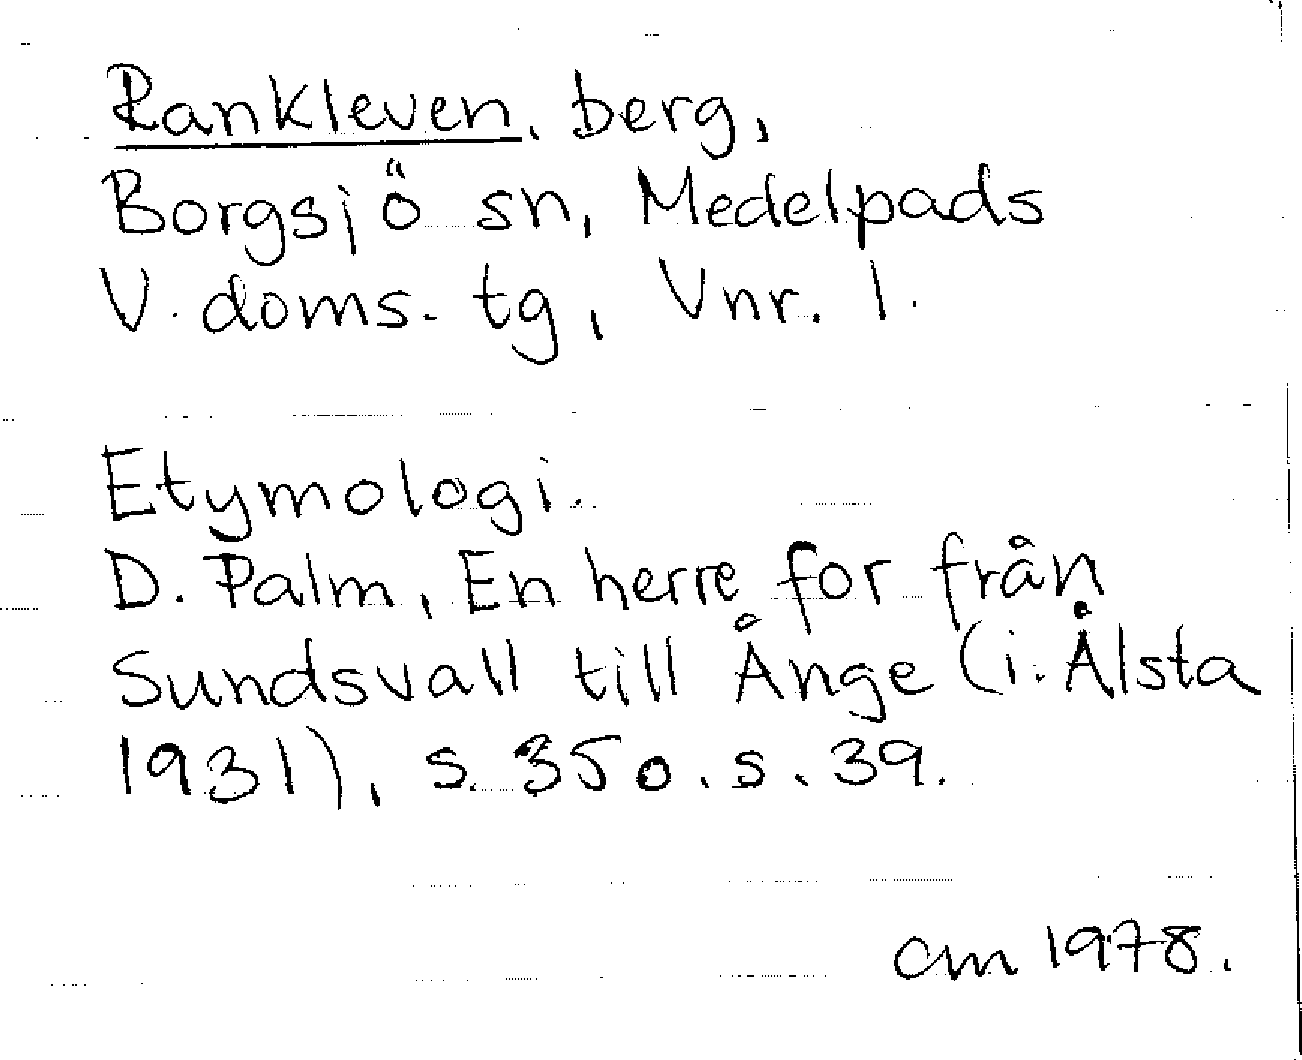 Rankleven, berg,
Borgsjö sn, Medelpads
V. doms. tg, Vnr. 1.
Etymologi.
D. Palm, En herre for från
Sundsvall till Ånge (i. Ålsta
1931), s. 35 o. s. 39.
cm 1978.